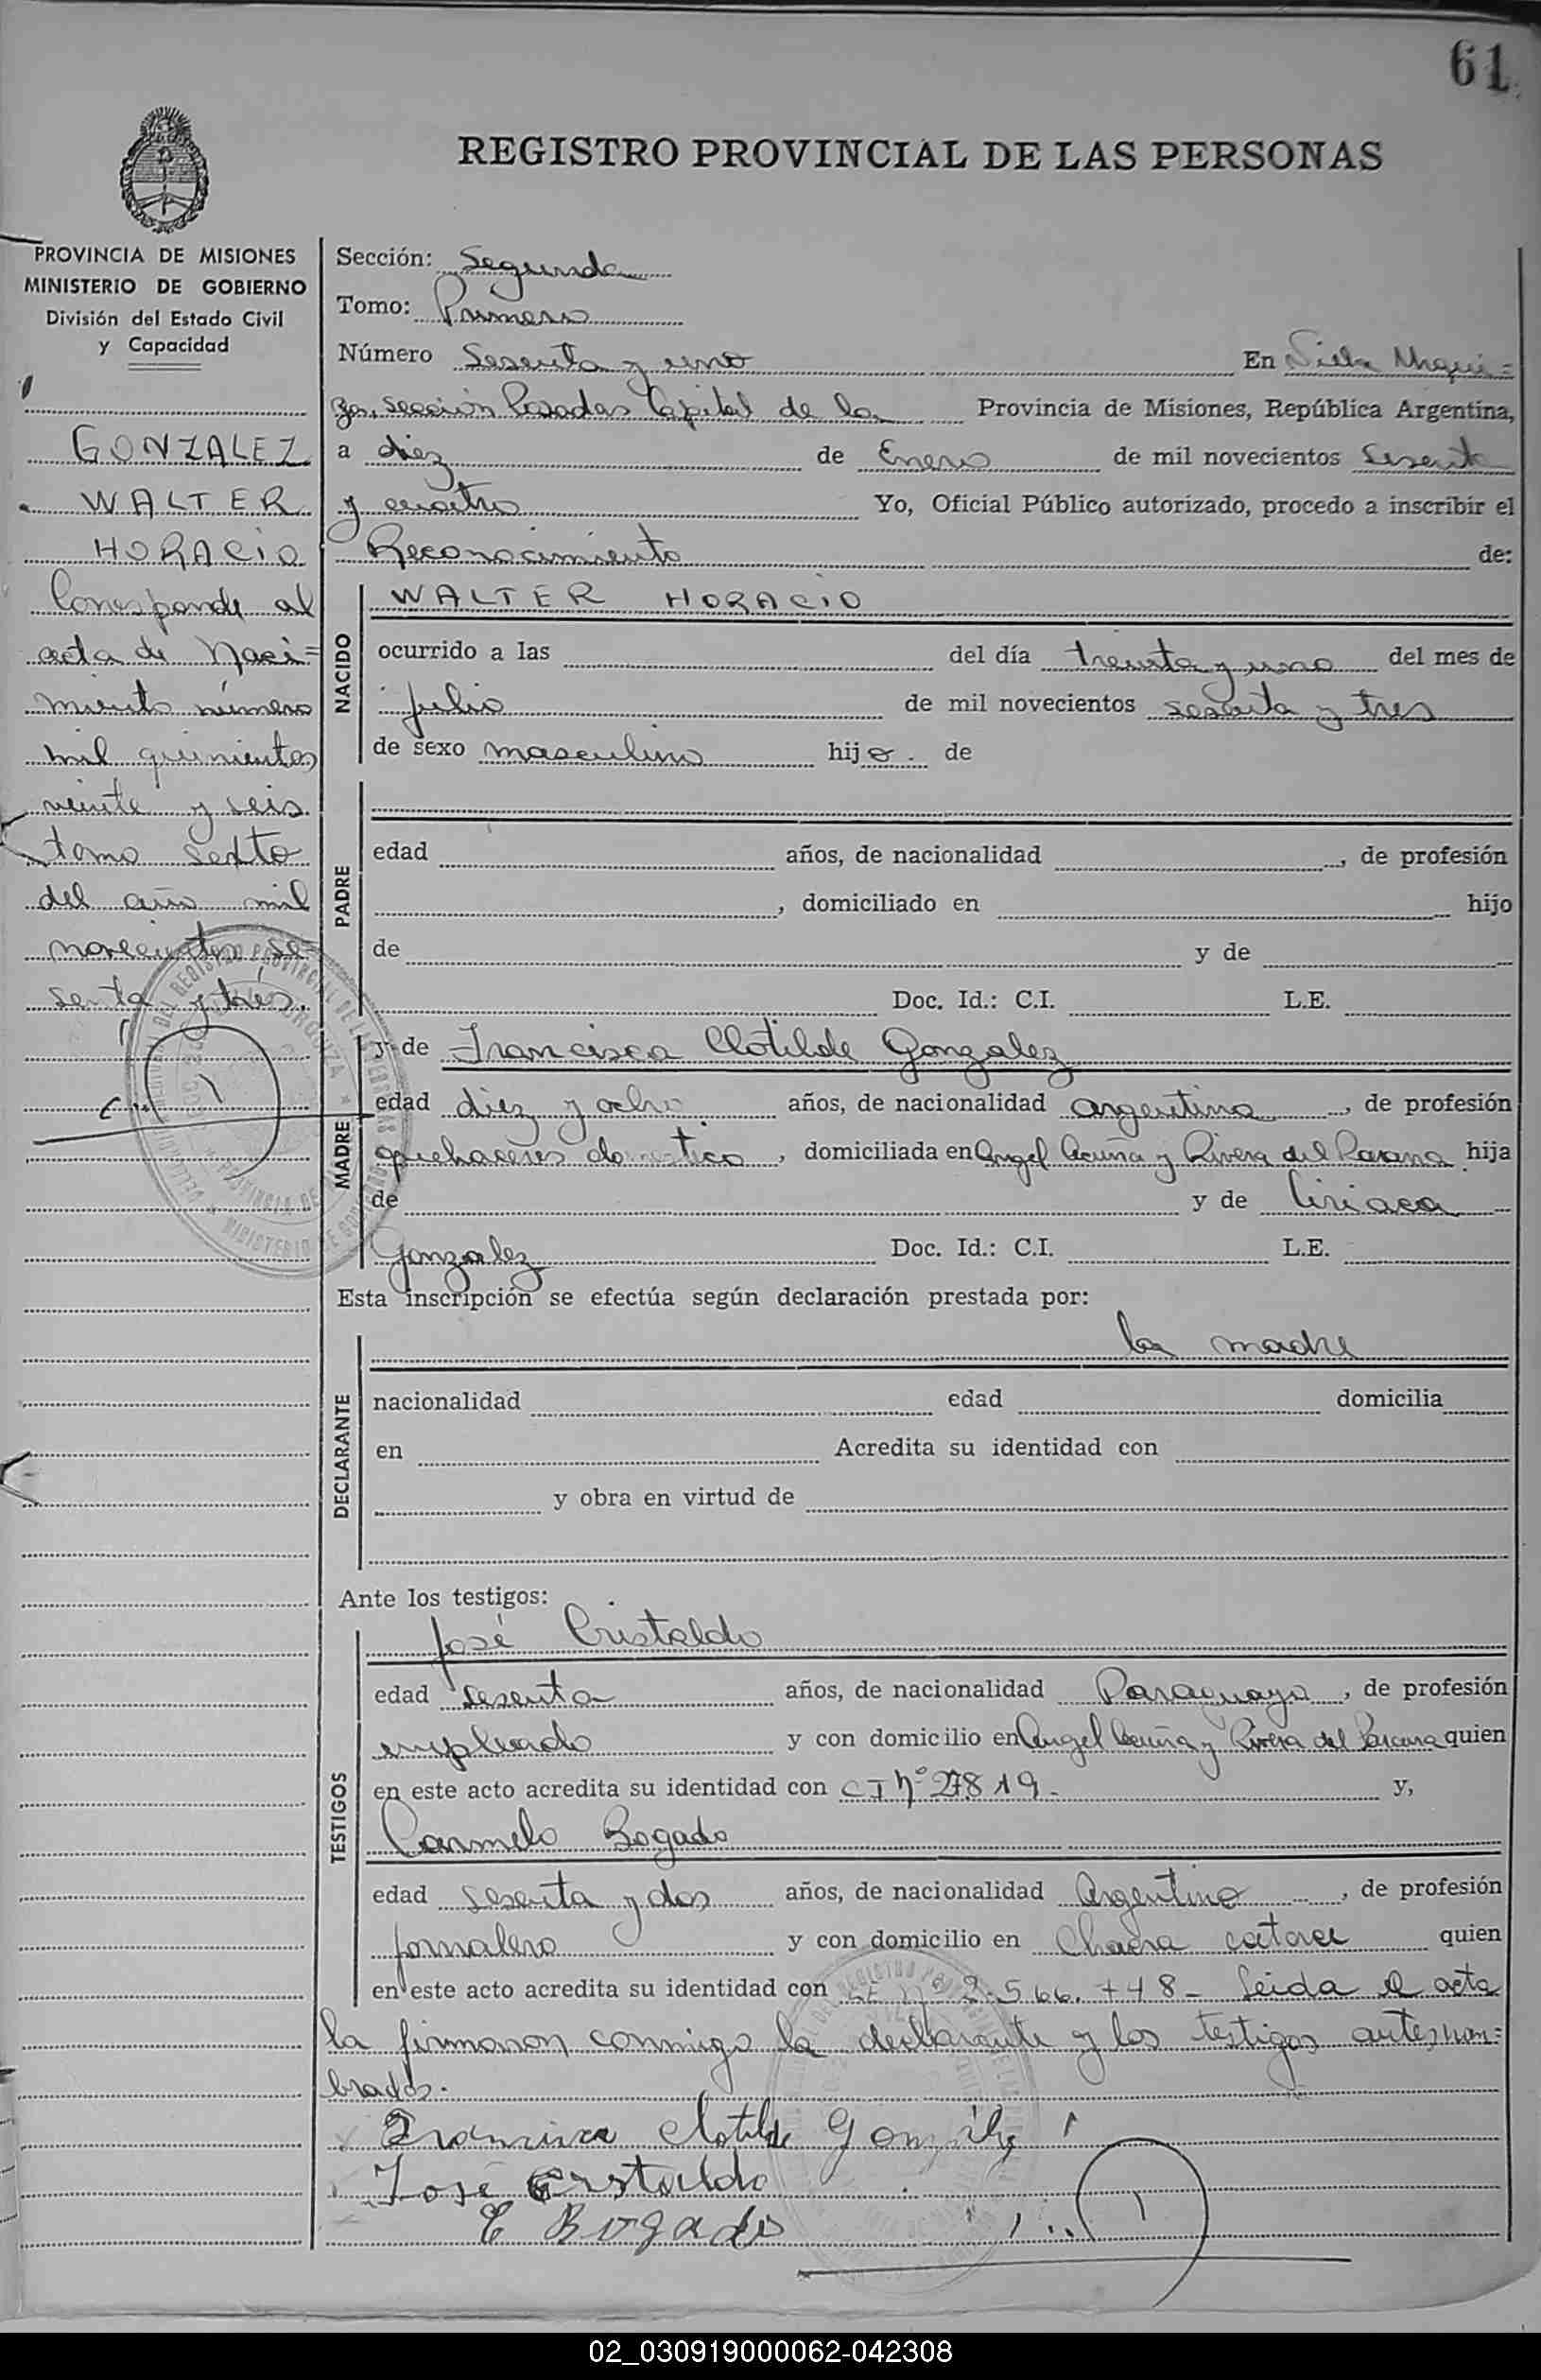 61
REGISTRO PROVINCIAL DE LAS PERSONAS
PROVINCIA DE MISIONES
MINISTERIO DE GOBIERNO
División del Estado Civil
y Capacidad
GONZALEZ
WALTER
HORACIO
Corresponde al
acta de Naci=
miento número
mil quinientos
veinte y seis
tomo sexto
del año mil
novecientos se
senta y tres.
Sección: Segunda
Tomo: Primero
Número Sesenta y uno En Villa Urqui=
za, Sección Posadas Capital de la Provincia de Misiones, República Argentina,
a diez de Enero de mil novecientos sesenta
y cuatro Yo, Oficial Público autorizado, procedo a inscribir el
Reconocimiento de:
NACIDO
WALTER HORACIO
ocurrido a las del día treinta y uno del mes de
julio de mil novecientos sesenta y tres
de sexo masculino hijo. de
PADRE
edad años, de nacionalidad , de profesión
, domiciliado en hijo
de y de
Doc. Id.: C.I. L.E.
MADRE
y de Francisca Clotilde Gonzalez
edad diez y ocho años, de nacionalidad argentina, de profesión
quehaceres domestico, domiciliada en Angel Acuña y Rivera del Parana hija
de y de Ciriaca
Gonzalez Doc. Id.: C.I. L.E.
Esta inscripción se efectúa según declaración prestada por:
DECLARANTE
la madre
nacionalidad edad domicilia
en Acredita su identidad con
y obra en virtud de
Ante los testigos:
TESTIGOS
José Cristaldo
edad sesenta años, de nacionalidad Paraguaya, de profesión
empleado y con domicilio en Angel Acuña y Rivera del Parana quien
en este acto acredita su identidad con CI Nº 27819. y,
Carmelo Bogado
edad sesenta y dos años, de nacionalidad Argentino, de profesión
jornalero y con domicilio en Chacra catorce quien
en este acto acredita su identidad con Leida el acta
la firmaron conmigo la declarante y los testigos antesnom=
brados.
Francisca Clotilde Gonzalez
José Cristaldo
C Bogado
02_030919000062-042308